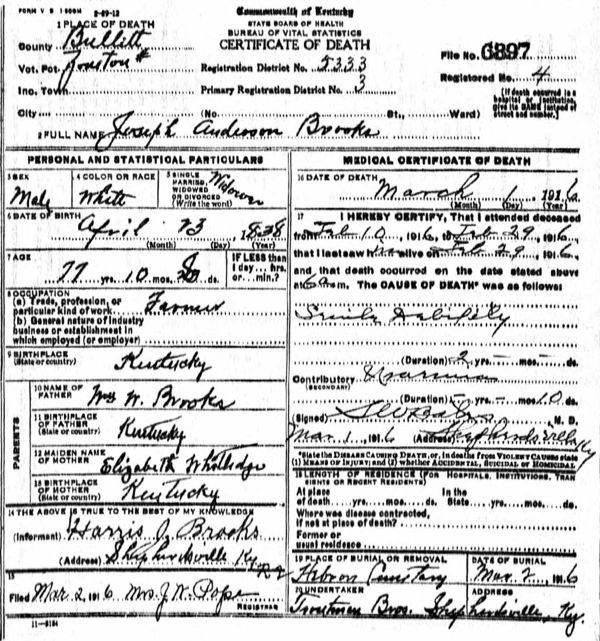 FORM V S 1 500M 8-29-12
Commonwealth of Kentucky
STATE BOARD OF HEALTH
BUREAU OF VITAL STATISTICS
CERTIFICATE OF DEATH
1 PLACE OF DEATH
County Bullitt
Vot. Pct.
Inc. Town
City
Registration District No. 5333
Primary Registration District No. 3
(No. St., Ward)
File No. 6897
Registered No. 4
(If death occurred in a hospital or institution, give its NAME instead of street and number.)
2 FULL NAME Joseph Anderson Brooks
PERSONAL AND STATISTICAL PARTICULARS
3 SEX Male
4 COLOR OR RACE White
5 SINGLE MARRIED, WIDOWED OR DIVORCED (Write the word) Widower
6 DATE OF BIRTH April 23, 1838
(Month) (Day) (Year)
7 AGE 77 yrs. 10 mos. ds.
IF LESS than 1 day... hrs. or... min.?
8 OCCUPATION
(a) Trade, profession, or particular kind of work Farmer
(b) General nature of industry business or establishment in which employed (or employer)
9 BIRTHPLACE (State or country) Kentucky
PARENTS
10 NAME OF FATHER W. Brooks
11 BIRTHPLACE OF FATHER (State or country) Kentucky
12 MAIDEN NAME OF MOTHER Elizabeth Whitledge
13 BIRTHPLACE OF MOTHER (State or country) Kentucky
14 THE ABOVE IS TRUE TO THE BEST OF MY KNOWLEDGE
(Informant) Harris J. Brooks
(Address) Shepherdsville Ky
15
Filed Mar 2, 1916 Mrs. J. W. Pope
REGISTRAR
11-5184
MEDICAL CERTIFICATE OF DEATH
16 DATE OF DEATH March 1, 1916
(Month) (Day) (Year)
17 I HEREBY CERTIFY, That I attended deceased
from Feb 10, 1916, to Feb 29, 1916
that I last saw alive on Feb 29, 1916
and that death occurred on the date stated above
at m. The CAUSE OF DEATH* was as follows:
Senile Debility
(Duration) 2 yrs. mos. ds.
Contributory (SECONDARY)
(Duration) yrs. mos. 10 ds.
(Signed) M. D.
Mar 1, 1916 (Address) Shepherdsville Ky
*State the DISEASE CAUSING DEATH, or, in deaths from VIOLENT CAUSES state (1) MEANS OF INJURY; and (2) whether ACCIDENTAL, SUICIDAL or HOMICIDAL
18 LENGTH OF RESIDENCE (FOR HOSPITALS, INSTITUTIONS, TRANSIENTS OR RECENT RESIDENTS)
At place of death yrs. mos. ds. In the State yrs. mos. ds.
Where was disease contracted, if not at place of death?
Former or usual residence
19 PLACE OF BURIAL OR REMOVAL Hebron Cemetary
DATE OF BURIAL Mar. 2, 1916
20 UNDERTAKER Troutman Bros.
ADDRESS Shepherdsville, Ky.